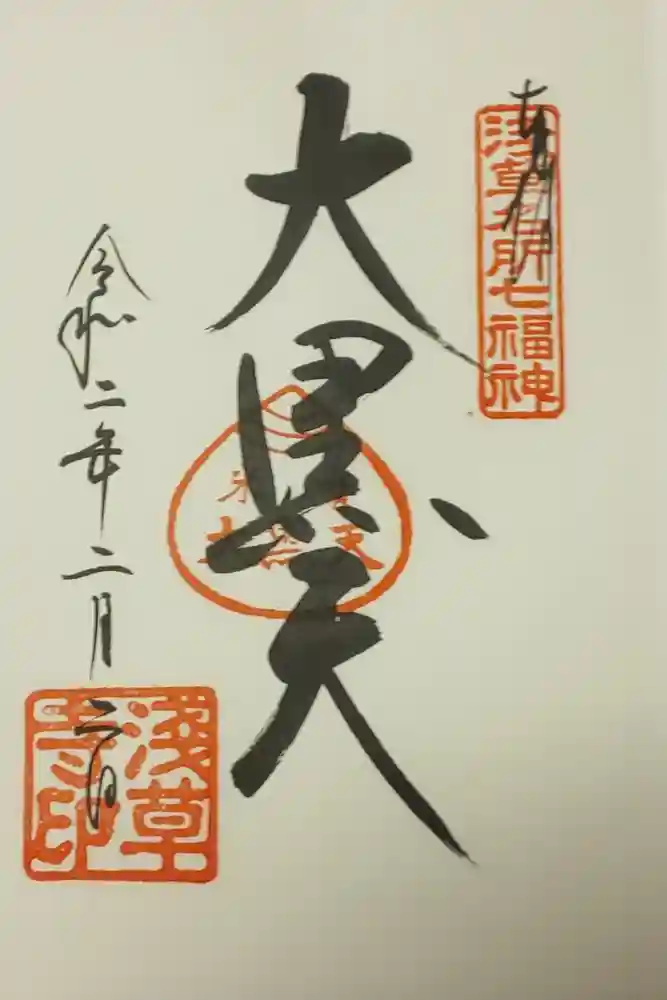 奉拝
浅草名所七福神
大黒天
令和二年二月二日
浅草
寺印